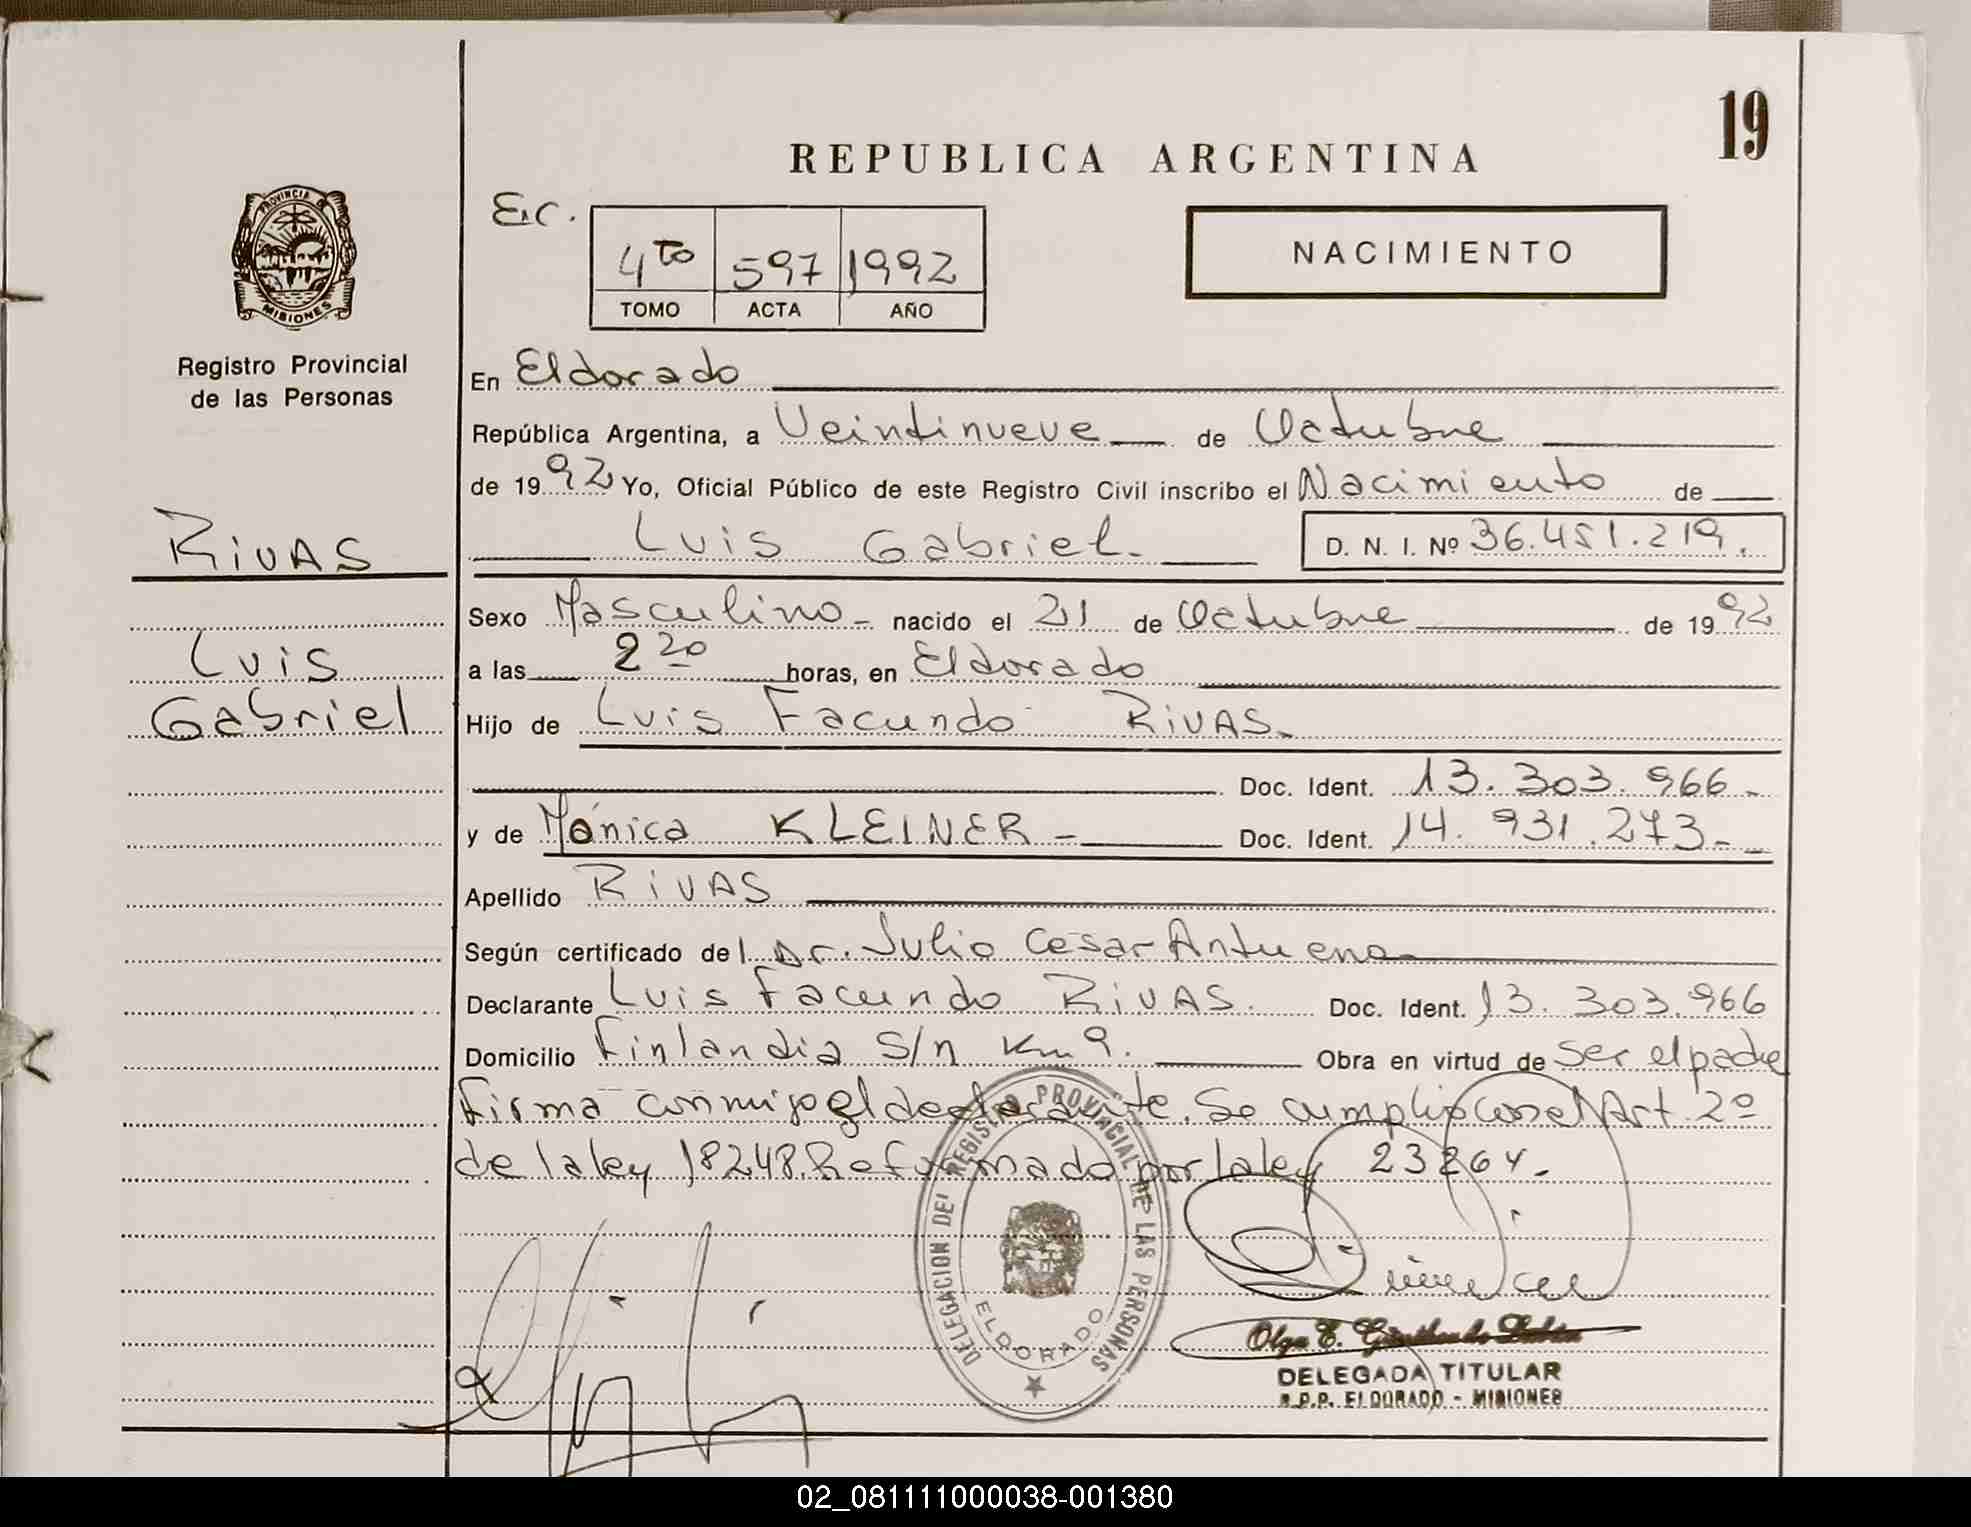 19
REPUBLICA ARGENTINA
PROVINCIA DE
MISIONES
E.C.
4to 597 1992
TOMO ACTA AÑO
NACIMIENTO
Registro Provincial
de las Personas
En Eldorado
República Argentina, a Veintinueve de Octubre
de 1992 Yo, Oficial Público de este Registro Civil inscribo el Nacimiento de
RIVAS
Luis Gabriel. D. N. I. Nº 36.451.219.
Sexo Masculino - nacido el 21 de Octubre de 1992
Luis
a las 2 20 horas, en Eldorado
Gabriel
Hijo de Luis Facundo RIVAS.
Doc. Ident. 13.303.966-
y de Mónica KLEINER - Doc. Ident. 14.931.273-
Apellido RIVAS
Según certificado del Dr. Julio Cesar Antuena
Declarante Luis Facundo RIVAS. Doc. Ident. 13.303.966
Domicilio Finlandia S/n Km 9. Obra en virtud de ser el padre
Firma conmigo el declarante. Se cumplio con el Art. 2º
de la ley 18248. Reformado por la ley 23264.
DELEGACION DEL REGISTRO PROVINCIAL DE LAS PERSONAS
ELDORADO
Olga E.
DELEGADA TITULAR
R.P.P. ELDORADO - MISIONES
02_081111000038-001380